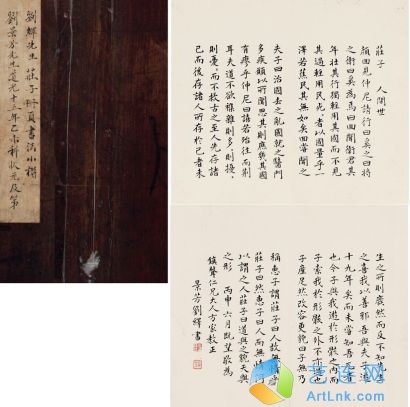 劉繹先生 莊子冊頁書法小楷
劉景芳先生道光十五年乙未科狀元及第
莊子 人間世
顏回見仲尼請行曰奚之曰將
之衛曰奚為焉曰回聞衛君其
年壯其行獨輕用其國而不見
其過輕用民死者以國量乎
澤若蕉民其無如矣回嘗聞之
夫子曰治國去之亂國就之醫門
多疾願以所聞思其則庶其國
有瘳乎仲尼曰譆若殆往而刑
耳夫道不欲雜雜則多多則擾
則憂憂而不救古之至人先存諸
己而後存諸人所存於己者未
生之所則廢然而反不知先生
之善我以善邪吾與夫子遊
十九年矣而未嘗知吾兀者
也今子與我遊於形骸之內而
子索我於形骸之外不亦過乎
子產蹴然改容更貌曰子無乃
稱惠子謂莊子曰人故無情乎
莊子曰然惠子曰人而無情何
以謂之人莊子曰道與之貌天與
之形 丙申六月既望敬為
鎮聲仁兄大人方家教正
景芳劉繹書
艺连网
ArtLnk.com